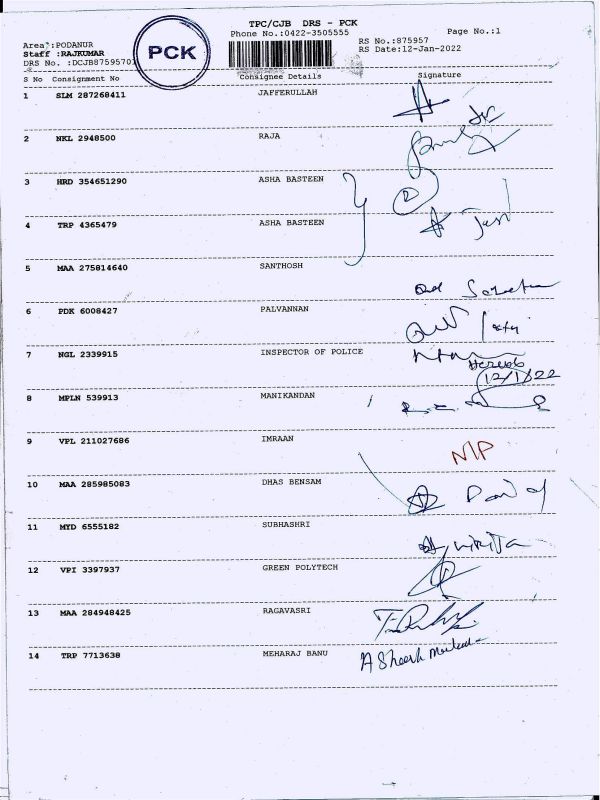 TPC/CJB DRS - PCK
Phone No.:0422-3505555
Page No.:1
Area :PODANUR
RS No.:875957
Staff :RAJKUMAR
RS Date:12-Jan-2022
DRS No. :DCJB8759570
PCK
S No Consignment No Consignee Details Signature
1 SLM 287268411 JAFFERULLAH
2 NKL 2948500 RAJA
3 HRD 354651290 ASHA BASTEEN
4 TRP 4365479 ASHA BASTEEN
5 MAA 275814640 SANTHOSH
6 PDK 6008427 PALVANNAN
7 NGL 2339915 INSPECTOR OF POLICE
12/1/22
8 MPLN 539913 MANIKANDAN
9 VPL 211027686 IMRAAN
N/P
10 MAA 285985083 DHAS BENSAM
11 MYD 6555182 SUBHASHRI
12 VPI 3397937 GREEN POLYTECH
13 MAA 284948425 RAGAVASRI
14 TRP 7713638 MEHARAJ BANU